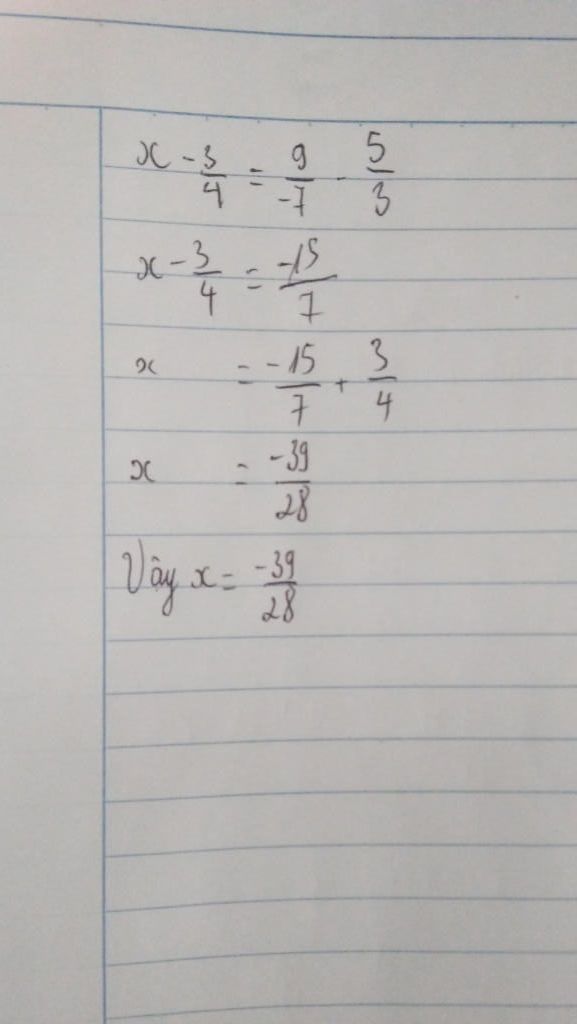 x - 3/4 = 9/-7 . 5/3
x - 3/4 = -15/7
x = -15/7 + 3/4
x = -39/28
Vậy x = -39/28